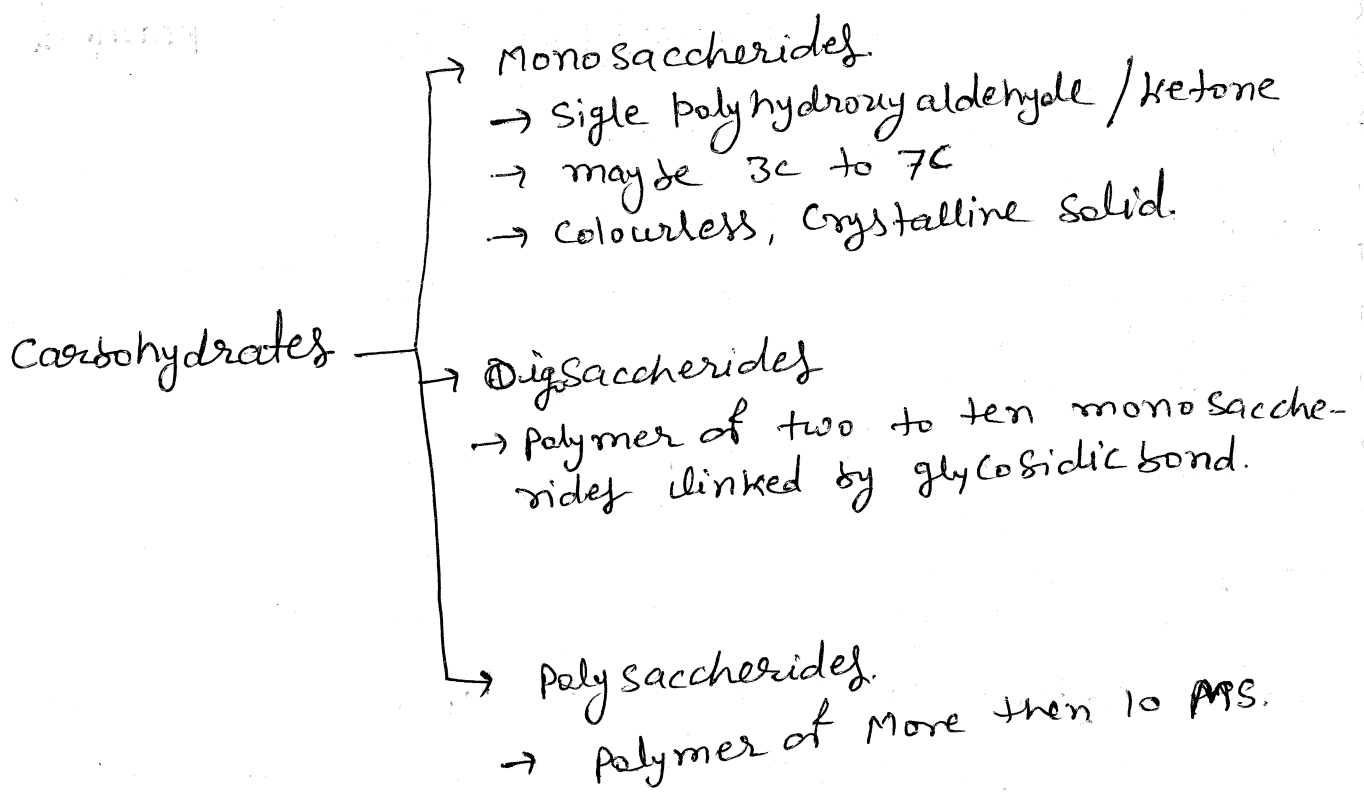 Monosaccherides.
→ Sigle polyhydroxy aldehyde / ketone
→ may be 3c to 7C
→ Colourless, Crystalline solid.
Carbohydrates
Oligosaccherides
→ Polymer of two to ten monosacche-
rides linked by glycosidic bond.
Polysaccherides.
→ Polymer of More then 10 MS.